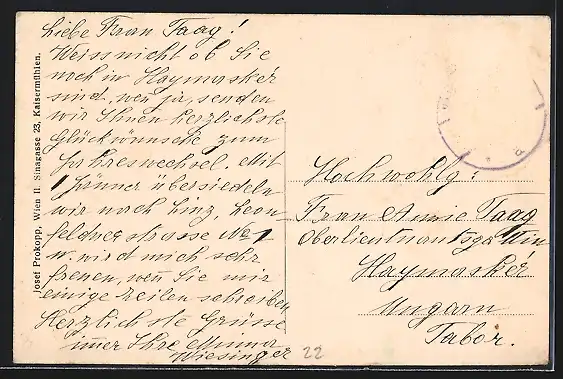 Liebe Frau Taag!
Weiss nicht ob Sie
noch in Haymasker
sind, wen ja, senden
wir Ihnen herzlichste
Glückwünsche zum
Jahreswechsel. Mit
1 Jänner übersiedeln
wir nach Linz, Leon-
feldnerstrasse No 1
w. wird mich sehr
freuen, wen Sie mir
einige Zeilen schreiben
Herzlichste Grüsse
immer Ihre
Wiesinger
Josef Prokopp, Wien II. Sinagasse 23, Kaisermühlen.
Hochwohlg:
Frau Taag
Oberlieutnantsga
Haymaskér
Ungarn
Tabor.
22